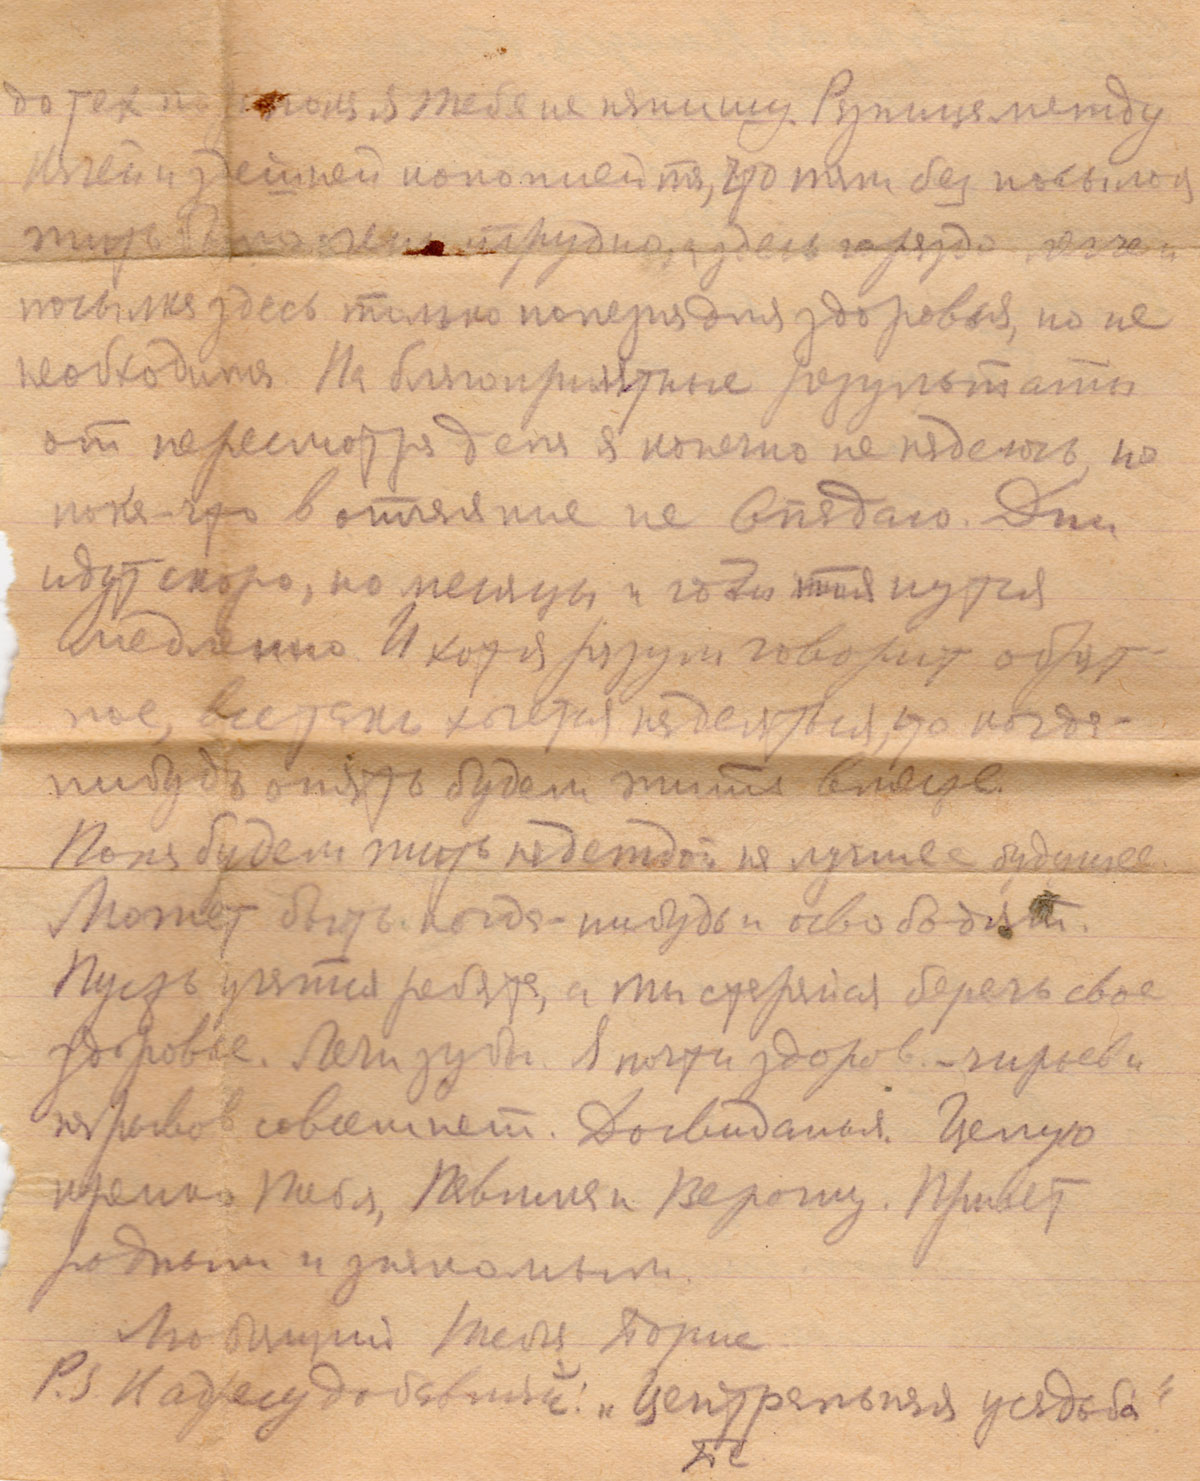 до тех пор пока я тебе не напишу. Разница между
и здешней колонией та, что там без посылок
жить было очень трудно, а здесь гораздо легче и
посылка здесь только полезна для здоровья, но не
необходима. На благоприятные результаты
от пересмотра дела я конечно не надеюсь, но
пока-что в отчаяние не впадаю. Дни
идут скоро, но месяцы и годы тянутся
медленно. И хотя разум говорит обрат-
ное, все таки хочется надеяться, что когда-
нибудь опять будем жить вместе.
Пока будем жить надеждой на лучшее будущее.
Может быть когда-нибудь и освободят.
Пусть учатся ребята, а ты старайся беречь свое
здоровье. Лечи зубы. Я почти здоров. - чирьев и
нарывов совсем нет. Досвиданья. Целую
крепко тебя, Павлика и Верочку. Привет
родным и знакомым.
Любящий тебя Борис
P.S. К адресу добавляй: „Центральная усадьба"